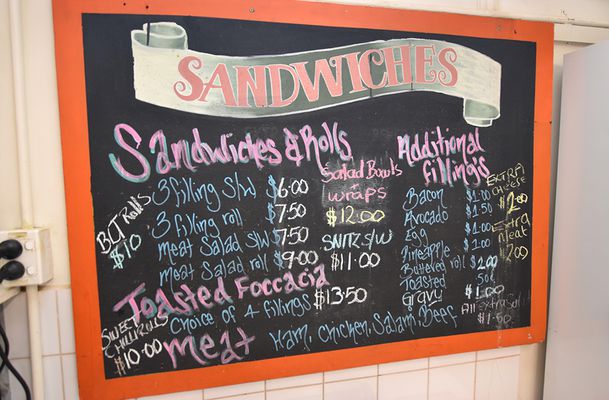 SANDWICHES
Sandwiches & Rolls
3 filling S/W $6.00
3 filling roll $7.50
Meat Salad S/W $7.50
Meat Salad roll $9.00
BLT Rolls
$10
Salad Bowls
wraps
$12.00
SNITZ S/W
$11.00
Additional
filling's
Bacon $1.00
Avocado $1.50
Egg $1.00
Pineapple $1.00
Buttered roll $2.00
Toasted 50c
Gravy $1.00
EXTRA
CHEESE
$2.00
Extra
Meat
$2.00
All extra Salad
$1.50
Toasted Foccacia
Choice of 4 fillings $13.50
SWEET
CHILLI ROLLS
$10.00
Meat Ham, Chicken, Salami, Beef